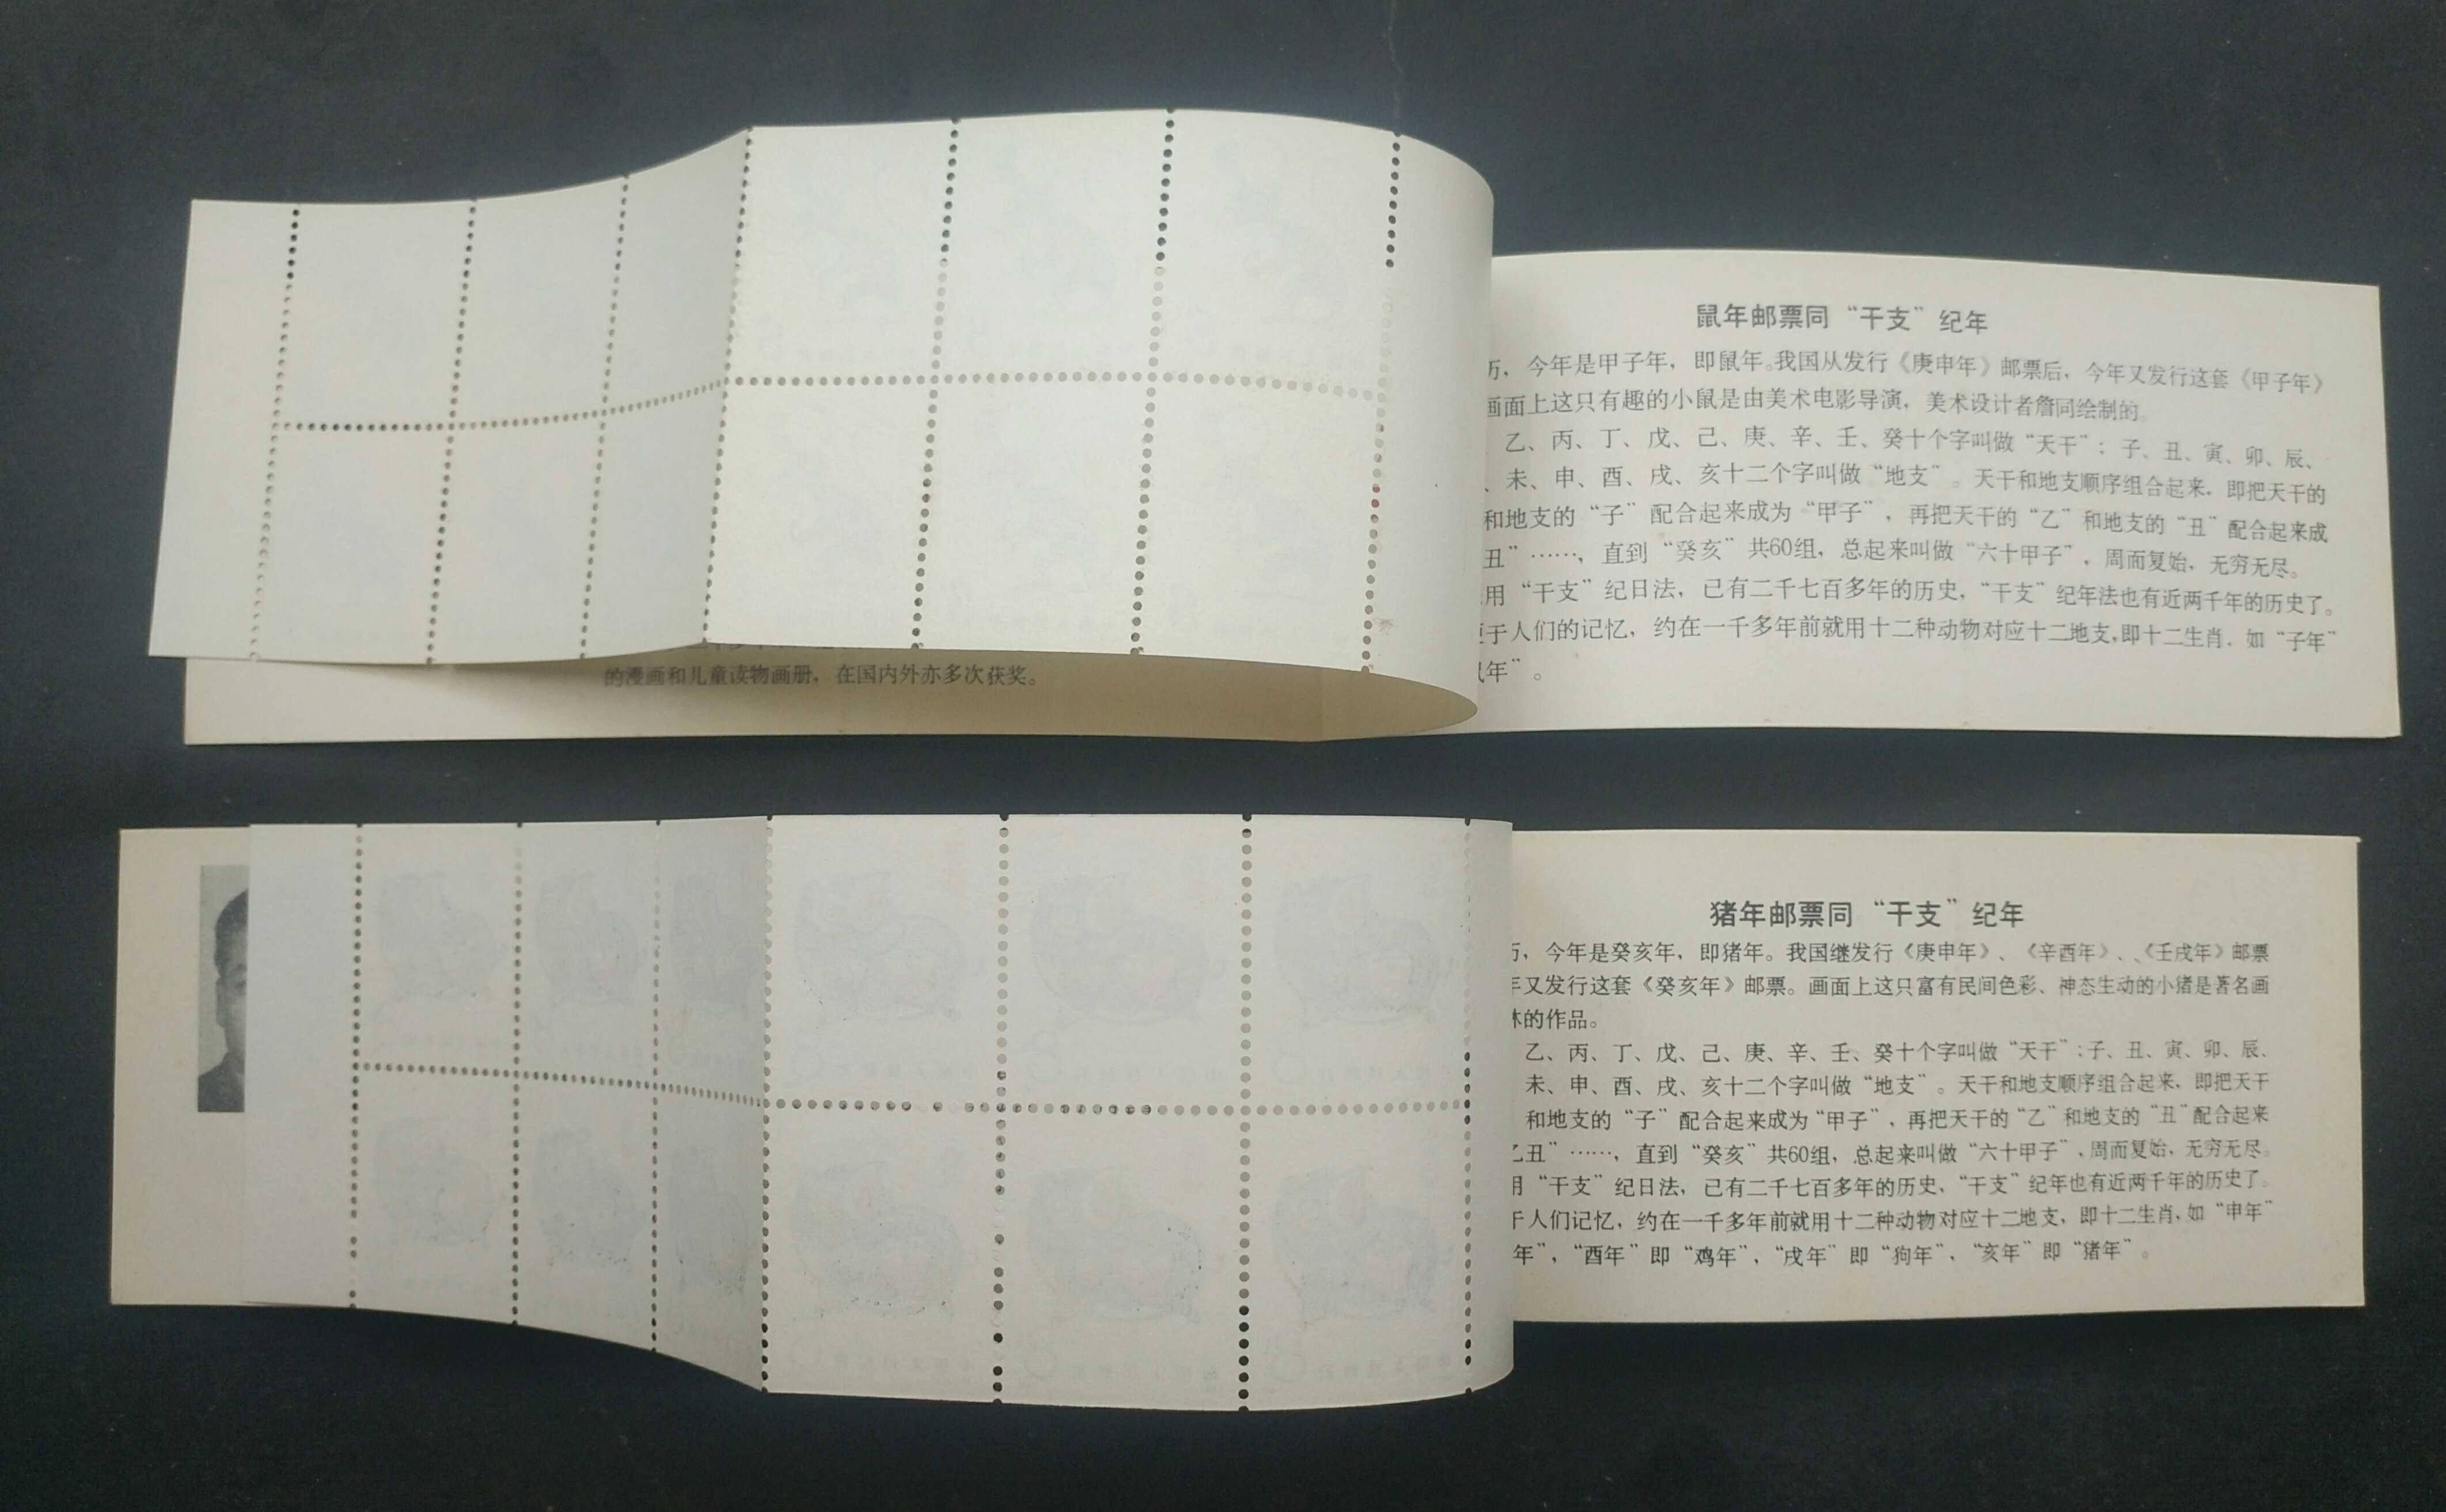 鼠年邮票同“干支”纪年
历，今年是甲子年，即鼠年。我国从发行《庚申年》邮票后，今年又发行这套《甲子年》
画面上这只有趣的小鼠是由美术电影导演，美术设计者詹同绘制的。
乙、丙、丁、戊、己、庚、辛、壬、癸十个字叫做“天干”；子、丑、寅、卯、辰、
、未、申、酉、戌、亥十二个字叫做“地支”。天干和地支顺序组合起来，即把天干的
和地支的“子”配合起来成为“甲子”，再把天干的“乙”和地支的“丑”配合起来成
丑”……，直到“癸亥”共60组，总起来叫做“六十甲子”，周而复始，无穷无尽。
用“干支”纪日法，已有二千七百多年的历史，“干支”纪年法也有近两千年的历史了。
于人们的记忆，约在一千多年前就用十二种动物对应十二地支，即十二生肖，如“子年”
年”。
的漫画和儿童读物画册，在国内外亦多次获奖。
猪年邮票同“干支”纪年
历，今年是癸亥年，即猪年。我国继发行《庚申年》、《辛酉年》、《壬戌年》邮票
年又发行这套《癸亥年》邮票。画面上这只富有民间色彩、神态生动的小猪是著名画
的作品。
乙、丙、丁、戊、己、庚、辛、壬、癸十个字叫做“天干”；子、丑、寅、卯、辰、
未、申、酉、戌、亥十二个字叫做“地支”。天干和地支顺序组合起来，即把天干
和地支的“子”配合起来成为“甲子”，再把天干的“乙”和地支的“丑”配合起来
乙丑”……，直到“癸亥”共60组，总起来叫做“六十甲子”，周而复始，无穷无尽。
用“干支”纪日法，已有二千七百多年的历史，“干支”纪年也有近两千年的历史了。
于人们记忆，约在一千多年前就用十二种动物对应十二地支，即十二生肖，如“申年”
年”，“酉年”即“鸡年”，“戌年”即“狗年”，“亥年”即“猪年”。